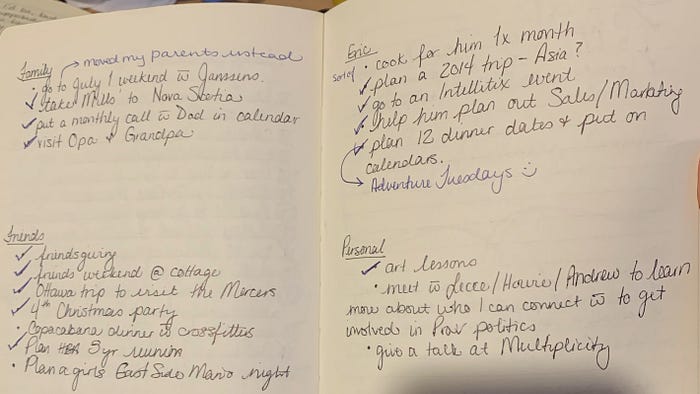 Family
→ moved my parents instead
• go to July 1 weekend w̄ Janssens.
✓ take Mills' to Nova Scotia
✓ put a monthly call w̄ Dad in calendar
✓ visit Opa & Grandpa
Friends
✓ friendsgiving
✓ friends weekend @ cottage
✓ Ottawa trip to visit the Mercers
✓ 4th Christmas party
• Copacabana dinner w̄ crossfitters
✓ Plan 5yr reunion
• Plan a girls East Side Mario night
Eric
sort of • cook for him 1x month
✓ plan a 2014 trip - Asia?
✓ go to an Intellitix event
✓ help him plan out Sales/Marketing
✓ plan 12 dinner dates & put on
calendars.
→ Adventure Tuesdays :)
Personal
✓ art lessons
• meet w̄ /Howie/Andrew to learn
more about who I can connect w̄ to get
involved in Prov politics
• give a talk at Multiplicity